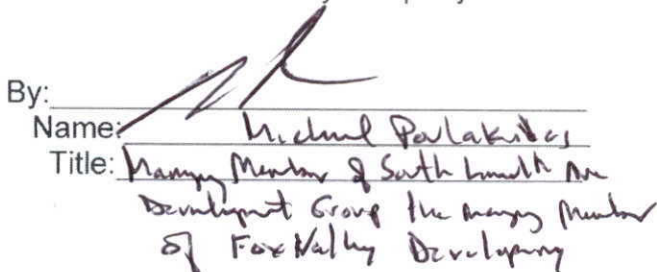 By:
Name: Michael Poulakidas
Title: Managing Member of South Lincoln Ave
Development Group the managing Member
of Fox Valley Developing